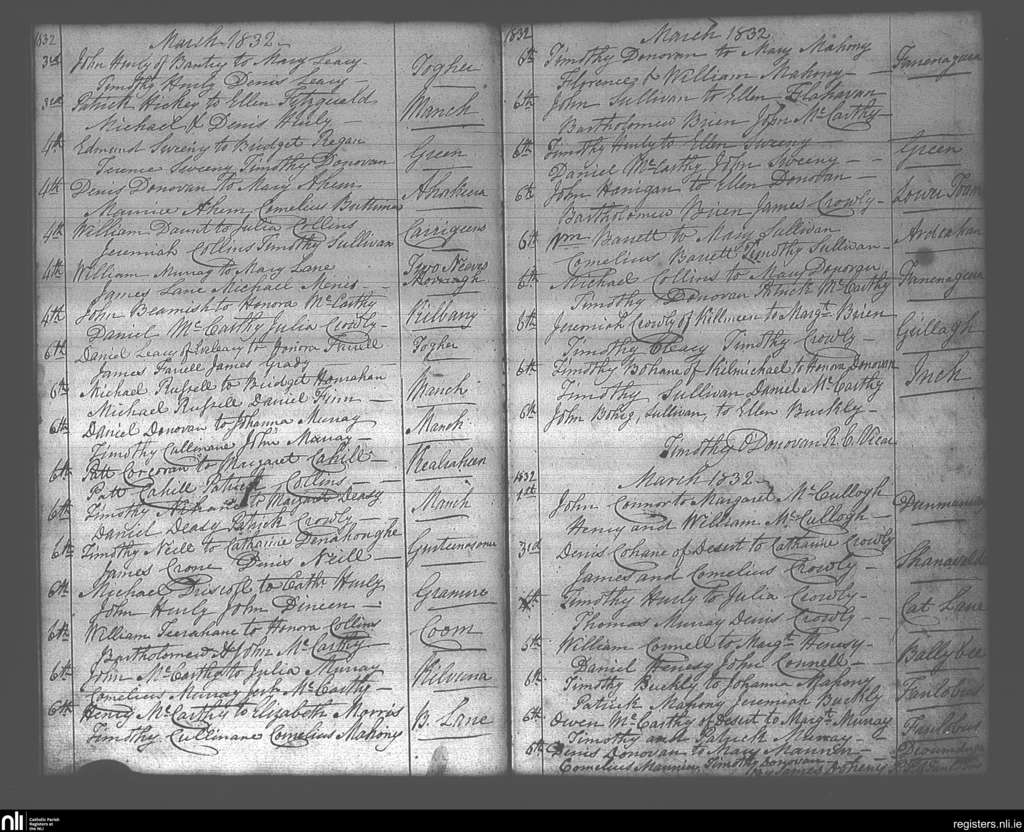 1832
March 1832
3rd John Hurly of Bantry to Mary Leary Togher
Timothy Hurly Denis Leary
3rd Patrick Hickey to Ellen Fitzgerald Manch
Michael & Denis Hurly
4th Edmund Sweeny to Bridget Regan Green
Terence Sweeny Timothy Donovan
4th Denis Donovan to Mary Ahern
Maurice Ahern Cornelius
4th William Daunt to Julia Collins Carrigeens
Jeremiah Collins Timothy Sullivan
4th William Murray to Mary Lane Two
James Lane Michael
4th John Beamish to Honora McCarthy Kilbarry
Daniel McCarthy Julia Crowly
6th Daniel Leary of to Honora Farrell Togher
James Farrell James Grady
6th Michael Russell to Bridget Hourahan Manch
Michael Russell Daniel Finn
6th Daniel Donovan to Johanna Murray Manch
Timothy Cullinane John Murray
6th Patt Corcoran to Margaret Cahill
Patt Cahill Patrick Collins
6th Timothy to Margaret Deasy Manch
Daniel Deasy Patrick Crowly
6th Timothy Neill to Catharine Donahoughe
James Crone Denis Neill
6th Michael Driscoll to Cathe Hurly
John Hurly John Dineen
6th William to Honora Collins Coom
Bartholomew & John McCarthy
6th John McCarthy to Julia Murray
Cornelius Murray McCarthy
6th Henry McCarthy to Elizabeth Morris B. Lane
Timothy Cullinane Cornelius Mahony
1832
March 1832
6th Timothy Donovan to Mary Mahony
Florence & William Mahony
6th John Sullivan to Ellen Flahavan
Bartholomew Brien John McCarthy
6th Timothy Hurly to Ellen Sweeny Green
Daniel McCarthy John Sweeny
6th John Hanigan to Ellen Donovan
Bartholomew Brien James Crowly
6th Wm Barrett to Mary Sullivan
Cornelius Barrett Timothy Sullivan
6th Michael Collins to Mary Donovan
Timothy Donovan Patrick McCarthy
6th Jeremiah Crowly of to Margt Brien
Timothy Cleary Timothy Crowly
6th Timothy Bohane of Kilmichael to Honora Donovan Inch
Timothy Sullivan Daniel McCarthy
6th John Sullivan, to Ellen Buckly
Timothy O'Donovan R.C. Vicar
1832
March 1832
1st John Connor to Margaret McCullogh Dunmanway
Henry and William McCullogh
3rd Denis Cohane of Desert to Catharine Crowly
James and Cornelius Crowly
Timothy Hurly to Julia Crowly Cat Lane
Thomas Murray Denis Crowly
5th William Connell to Margt Henesy
Daniel Henesy John Connell
6th Timothy Buckly to Johanna Mahony Fanlobus
Patrick Mahony Jeremiah Buckly
6th Owen McCarthy of Desert to Margt Murray Fanlobus
Timothy and Patrick Murray
6th Denis Donovan to Mary Mannin
Cornelius Mannin Timothy Donovan
nli
Catholic Parish
Registers at
the NLI
registers.nli.ie